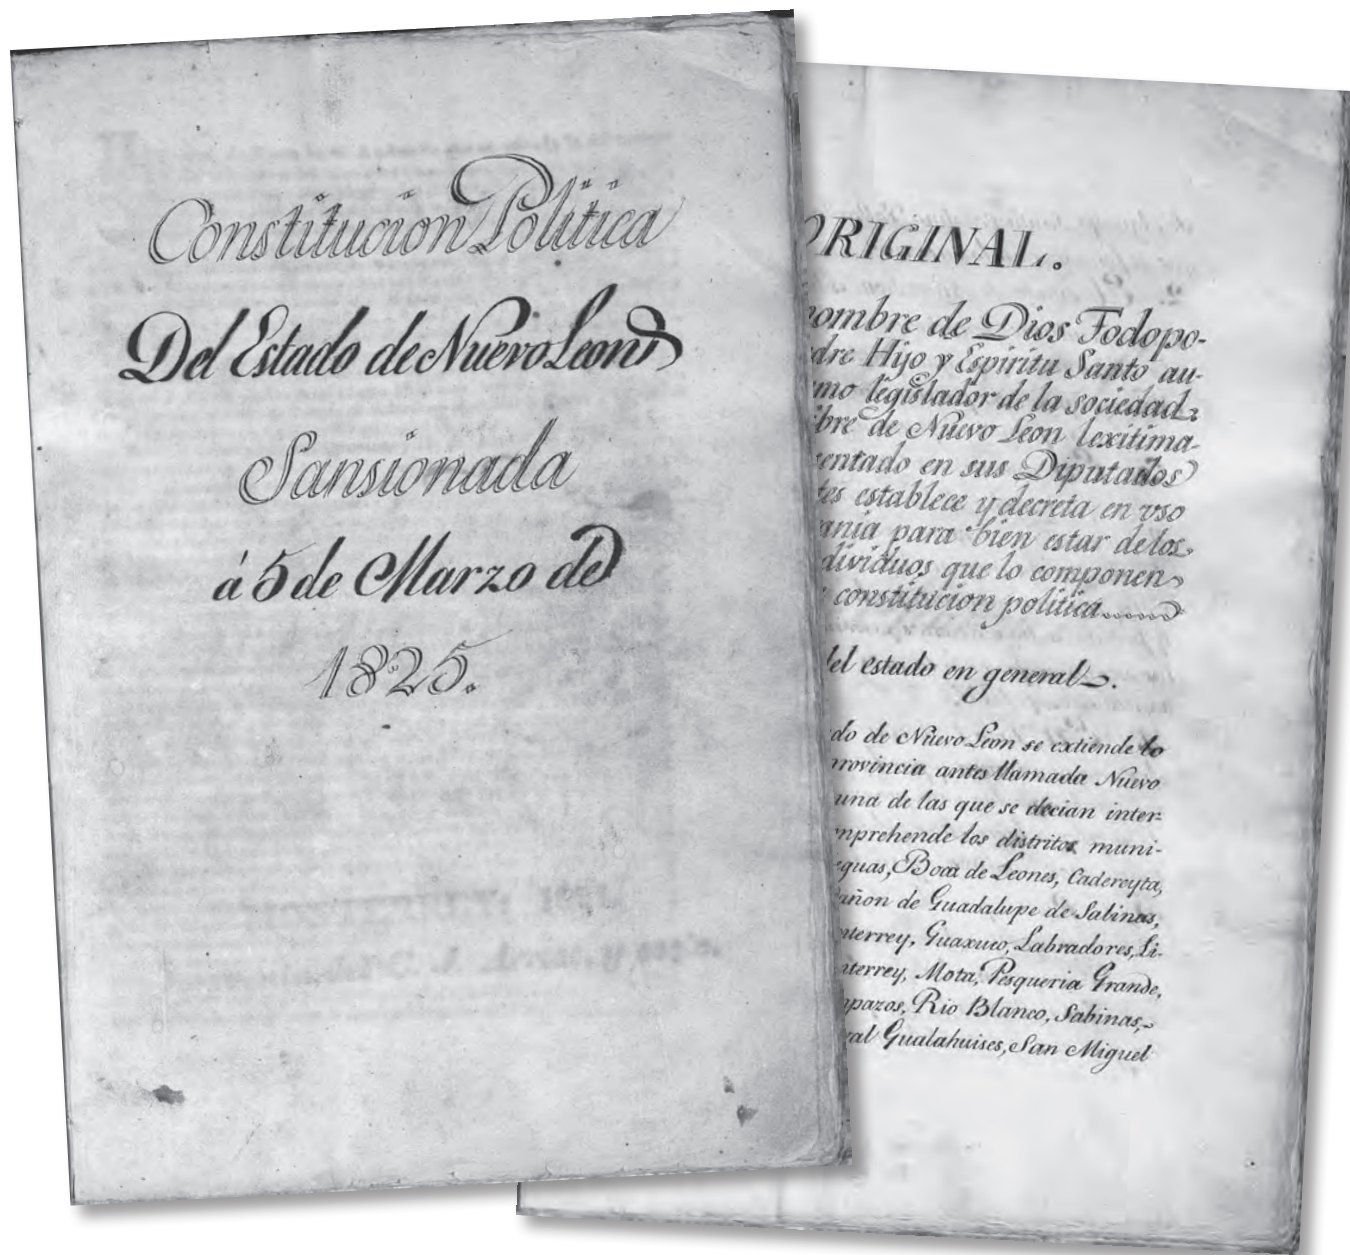 Constitucion Politica
Del Estado de Nuevo Leon
Sansionada
á 5 de Marzo de
1825.
ORIGINAL.
nombre de Dios Todopo-
dre Hijo y Espiritu Santo au-
mo legislador de la sociedad.
ibre de Nuevo Leon lexitima-
sentado en sus Diputados
tes establece y decreta en vso
ania para bien estar de los
dividuos que lo componen
constitucion politica
del estado en general.
do de Nuevo Leon se extiende lo
provincia antes llamada Nuevo
una de las que se decian inter-
mprehende los distritos muni-
eguas, Boca de Leones, Cadereyta,
añon de Guadalupe de Salinas,
nterrey, Guaxuco, Labradores, Li-
nterrey, Mota, Pesqueria Grande,
mpazos, Rio Blanco, Sabinas,
ral Gualahuises, San Miguel